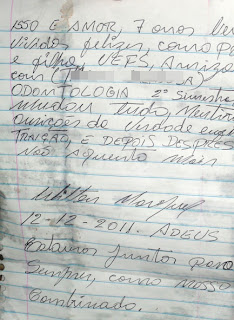 ISSO E AMOR, 7 anos
vividos felizes, como pa
e filho, UEFS, Amizo
com (T A)
ODONTOLOGIA 2º Semestre
mudou tudo,
omissões da verdade
TRAIÇÃO, E DEPOIS DESPRES
Não Aguento mais
12-12-2011. ADEUS
Estamos Juntos para
Sempre, como nosso
Combinado.